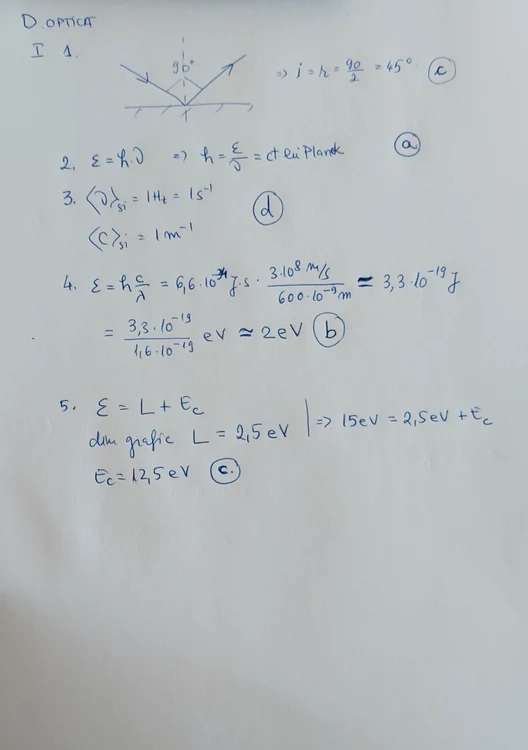 D. OPTICA
I 1. 90° => i = r = 90/2 = 45° (c)
2. ε = h·ν => h = ε/ν = ct lui Planck (a)
3. <ν>SI = 1Hz = 1s⁻¹
(d)
<C>SI = 1m⁻¹
4. ε = h c/λ = 6,6·10⁻³⁴ J·s · 3·10⁸ m/s / 600·10⁻⁹ m = 3,3·10⁻¹⁹ J
= 3,3·10⁻¹⁹ / 1,6·10⁻¹⁹ eV ≃ 2eV (b)
5. ε = L + Ec
din grafic L = 2,5 eV | => 15eV = 2,5eV + Ec
Ec = 12,5 eV (c.)